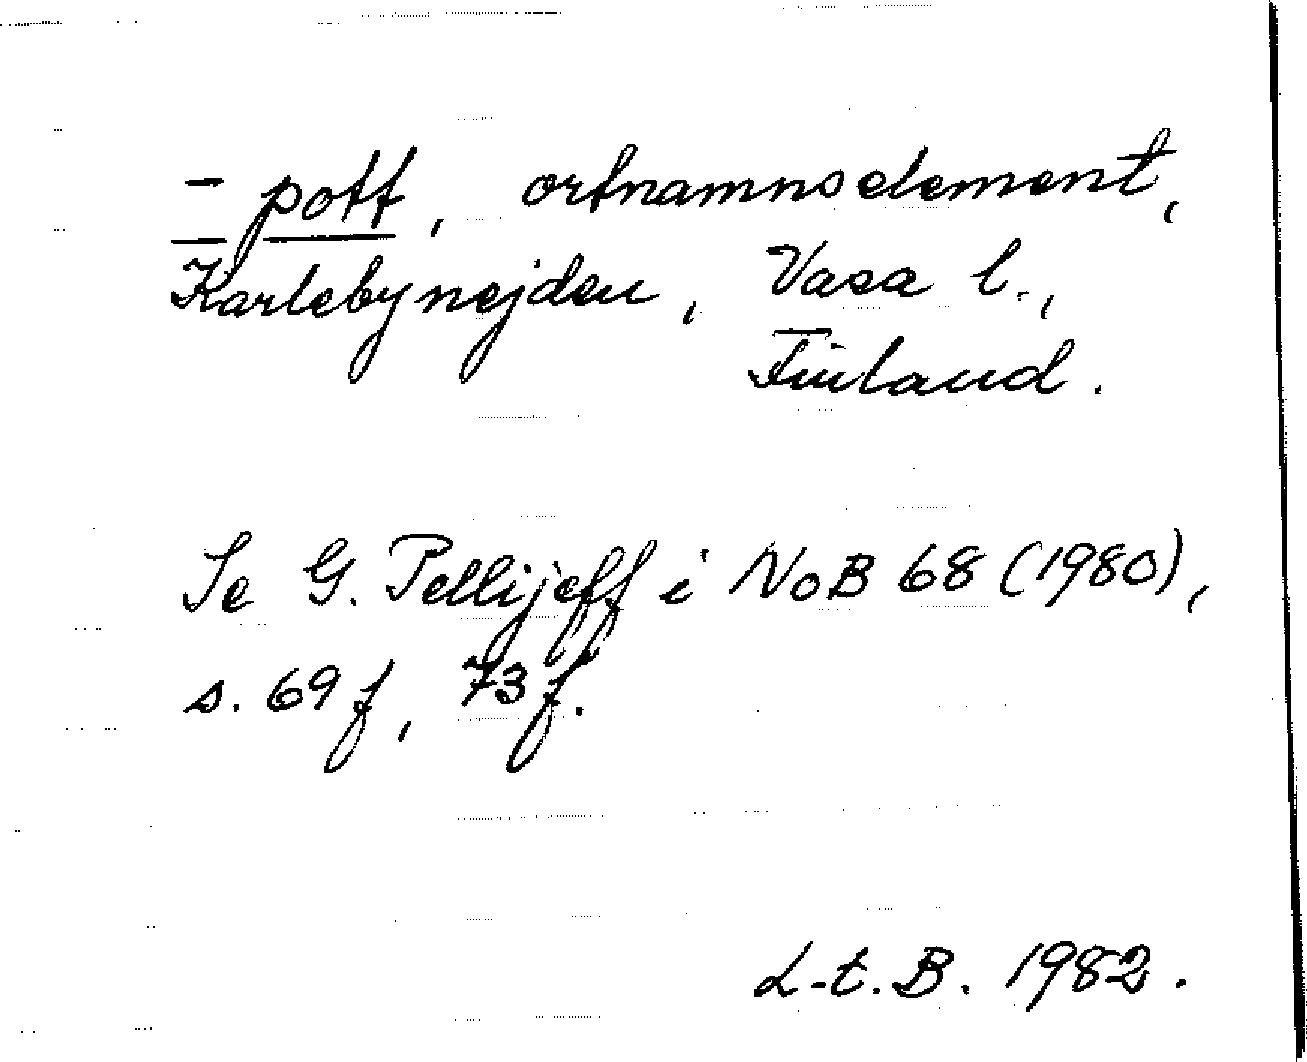 -pott, ortnamnselement,
Karlebynejden, Vasa l.,
Finland.
Se G. Pellijeff i NoB 68 (1980),
s. 69 f, 73 f.
L-t. B. 1982.